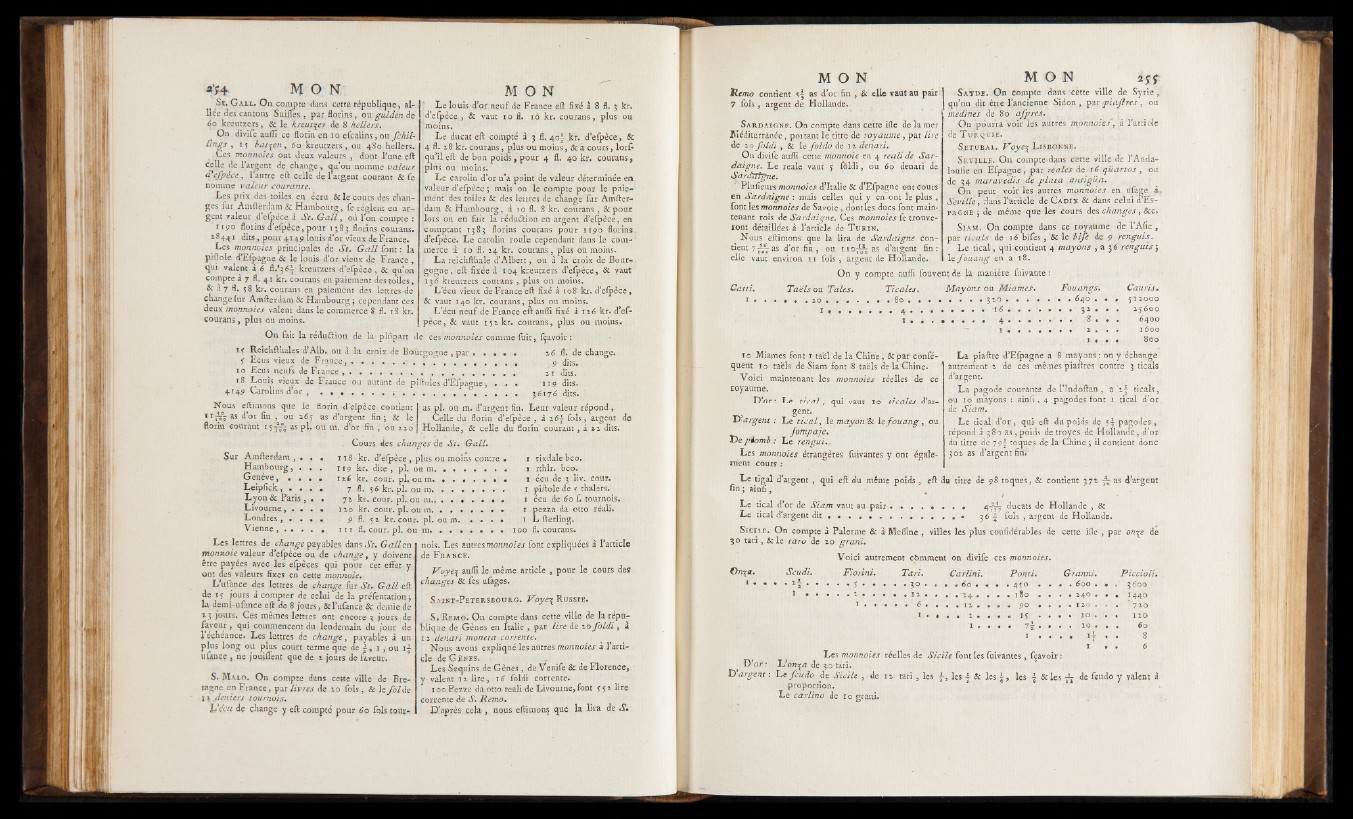 254 MON MON
St. GALL. On compte dans cette république, al-
liée des cantons Suisses, par florins, ou gulden de
60 kreutzers, & le kreutzes de 8 hellers.
On divise aussi ce florin en 10 escalins, ou schil-
lings, 15 batzen, 60 kreutzers, ou 480 hellers.
Ces monnoies ont deux valeurs, dont l'une est
celle de l'argent de change, qu'on nomme valeur
d'espèce, l'autre est celle de l'argent courant & se
nomme valeur courante.
Les prix des toiles en écru & le cours des chan-
ges sur Amsterdam & Hambourg, se règlent en ar-
gent valeur d'espèce à St. Gall, où l'on compte :
1190 florins d'espèce, pour 1383 florins courans.
28441 dits, pour 4149 louis d'or vieux de France.
Les monnoies principales de St. Gall sont : la
pistole d'Espagne & le louis d'or vieux de France,
qui valent à 6 fl. 36½ kreutzers d'espèce, & qu'on
compte à 7 fl. 42 kr. courans en paiement des toiles,
& à 7 fl. 58 kr. courans en paiement des lettres de
change sur Amsterdam & Hambourg ; cependant ces
deux monnoies valent dans le commerce 8 fl. 18 kr.
courans, plus ou moins.
Le louis d'or neuf de France est fixé à 8 fl. 3 kr.
d'espèce, & vaut 10 fl. 16 kr. courans, plus ou
moins.
Le ducat est compté à 3 fl. 40½ kr. d'espèce, &
4 fl. 28 kr. courans, plus ou moins, & a cours, lors-
qu'il est de bon poids, pour 4 fl. 40 kr. courans,
plus ou moins.
Le carolin d'or n'a point de valeur déterminée en
valeur d'espèce ; mais on le compte pour le paie-
ment des toiles & des lettres de change sur Amster-
dam & Hambourg, à 10 fl. 8 kr. courans, & pour
lors on en fait la réduction en argent d'espèce, en
comptant 1383 florins courans pour 1190 florins
d'espèce. Le carolin roule cependant dans le com-
merce à 10 fl. 24 kr. courans, plus ou moins.
La reichsthale d'Albert, ou à la croix de Bour-
gogne, est fixée à 104 kreutzers d'espèce, & vaut
136 kreutzers courans, plus ou moins.
L'écu vieux de France est fixé à 108 kr. d'espèce,
& vaut 140 kr. courans, plus ou moins.
L'écu neuf de France est aussi fixé à 126 kr. d'es-
pèce, & vaut 152 kr. courans, plus ou moins.
On fait la réduction de la plupart de ces monnoies comme suit, sçavoir :
15 Reichsthales d'Alb. ou à la croix de Bourgogne, par . . . . . 26 fl. de change.
5 Ecus vieux de France, . . . . . 9 dits.
10 Ecus neufs de France, . . . . . 21 dits.
18 Louis vieux de France ou autant de pistoles d'Espagne, . . . 119 dits.
4149 Carolins d'or, . . . . . 36176 dits.
Nous estimons que le florin d'espèce contient
as d'or fin, ou 265 as d'argent fin ; & le
florin courant as pl. ou m. d'or fin, ou 220
as pl. ou m. d'argent fin. Leur valeur répond,
Celle du florin d'espèce, à 26½ sols, argent de
Hollande, & celle du florin courant, à 22 dits.
Cours des changes de St. Gall.
Sur Amsterdam, . . . 118 kr. d'espèce, plus ou moins contre . 1 rixdale bco.
Hambourg, . . . 119 kr. dite, pl. ou m. . . . . . . . 1 rthlr. bco.
Genève, . . . . 126 kr. cour. pl. ou m. . . . . . . . 1 écu de 3 liv. cour.
Leipsick, . . . . 7 fl. 56 kr. pl. ou m. . . . . . . . 1 pistole de 5 thalers.
Lyon & Paris, . . 72 kr. cour. pl. ou m. . . . . . . . 1 écu de 60 s. tournois.
Livourne, . . . . 120 kr. cour. pl. ou m. . . . . . . 1 pezza da otto réali.
Londres, . . . . . 9 fl. 52 kr. cour. pl. ou m. . . . . 1 L sterling.
Vienne, . . . . . 111 fl. cour. pl. ou m. . . . . . . . 100 fl. courans.
Les lettres de change payables dans St. Gall en
monnoie valeur d'espèce ou de change, y doivent
être payées avec les espèces qui pour cet effet y
ont des valeurs fixes en cette monnoie.
L'usance des lettres de change sur St. Gall est
de 15 jours à compter de celui de la présentation ;
la demi-usance est de 8 jours, & l'usance & demie de
23 jours. Ces mêmes lettres ont encore 3 jours de
faveur, qui commencent du lendemain du jour de
l'échéance. Les lettres de change, payables à un
plus long ou plus court terme que de ½, 1, ou 1½
usance, ne jouissent que de 2 jours de faveur.
S. MALO. On compte dans cette ville de Bre-
tagne en France, par livres de 20 sols, & le sol de
12 deniers tournois.
L'écu de change y est compté pour 60 sols tour-
nois. Les autres monnoies sont expliquées à l'article
de FRANCE.
Voyez aussi le même article, pour le cours des
changes & ses usages.
SAINT-PETERSBOURG. Voyez RUSSIE.
S. REMO. On compte dans cette ville de la répu-
blique de Gènes en Italie, par lire de 20 soldi, à
12 denari moneta corrente.
Nous avons expliqué les autres monnoies à l'arti-
cle de GÈNES.
Les Sequins de Gènes, de Venise & de Florence,
y valent 12 lire, 16 soldi corrente.
100 Pezze da otto reali de Livourne, font 552 lire
corrente de S. Remo.
D'après cela, nous estimons que la lira de S.
MON MON 255
Remo contient as d'or fin, & elle vaut au pair
7 sols, argent de Hollande.
SARDAIGNE. On compte dans cette isle de la mer
Méditerranée, portant le titre de royaume, par lire
de 20 soldi, & le soldo de 12 denari.
On divise aussi cette monnoie en 4 reali de Sar-
daigne. Le reale vaut 5 soldi, ou 60 denari de
Sardaigne.
Plusieurs monnoies d'Italie & d'Espagne ont cours
en Sardaigne : mais celles qui y en ont le plus,
sont les monnoies de Savoie, dont les ducs sont main-
tenant rois de Sardaigne. Ces monnoies se trouve-
ront détaillées à l'article de TURIN.
Nous estimons que la lira de Sardaigne con-
tient as d'or fin, ou as d'argent fin :
elle vaut environ 11 sols, argent de Hollande.
SAYDE. On compte dans cette ville de Syrie,
qu'on dit être l'ancienne Sidon, par piastres, ou
medines de 80 aspres.
On pourra voir les autres monnoies, à l'article
de TURQUIE.
SETUBAL. Voyez LISBONNE.
SEVILLE. On compte dans cette ville de l'Anda-
lousie en Espagne, par reales de 16 quartos, ou
de 34 maravedis de plata antigüa.
On peut voir les autres monnoies en usage à
Séville, dans l'article de CADIX & dans celui d'ES-
PAGNE ; de même que les cours des changes, &c.
SIAM. On compte dans ce royaume de l'Asie,
par ticals de 16 bises, & le bise de 9 renguis.
Le tical, qui contient 4 mayons, a 36 renguis ;
le fouang en a 18.
On y compte aussi souvent de la manière suivante :
Catti. Taëls ou Tales. Ticales. Mayons ou Miames. Fouangs. Cauris.
1 . . . 20 . . . 80 . . . 320 . . . 640 . . . 512000
1 . . . 4 . . . 16 . . . 32 . . . 25600
1 . . . 4 . . . 8 . . . 6400
1 . . . 2 . . . 1600
1 . . . 800
10 Miames font 1 taël de la Chine, & par consé-
quent 10 taëls de Siam font 8 taëls de la Chine.
Voici maintenant les monnoies réelles de ce
royaume.
D'or : Le tical, qui vaut 10 ticales d'ar-
gent.
D'argent : Le tical, le mayon & le fouang, ou
sompaje.
De plomb : Le rengui.
Les monnoies étrangères suivantes y ont égale-
ment cours :
La piastre d'Espagne a 8 mayons : on y échange
autrement 2 de ces mêmes piastres contre 3 ticals
d'argent.
La pagode courante de l'Indostan, a 2½ ticals,
ou 10 mayons : ainsi, 4 pagodes font 1 tical d'or
de Siam.
Le tical d'or, qui est du poids de 5½ pagodes,
répond à 380 as, poids de troyes de Hollande, d'or
du titre de toques de la Chine ; il contient donc
302 as d'argent fin.
Le tigal d'argent, qui est du même poids, est du titre de 98 toques, & contient as d'argent
fin ; ainsi,
Le tical d'or de Siam vaut au pair . . . . . . . ducats de Hollande, &
Le tical d'argent dit . . . . . . . . . . . sols, argent de Hollande.
SICILE. On compte à Palerme & à Messine, villes les plus considérables de cette isle, par onze de
30 tari, & le taro de 20 grani.
Voici autrement comment on divise ces monnoies.
Onza. Scudi. Fiorini. Tari. Carlini. Ponti. Granni. Piccioli.
1 . . . 2½ . . . 5 . . . 30 . . . 60 . . . 450 . . . 600 . . . 3600
1 . . . 2 . . . 12 . . . 24 . . . 180 . . . 240 . . . 1440
1 . . . 6 . . . 12 . . . 90 . . . 120 . . . 720
1 . . . 2 . . . 15 . . . 20 . . . 120
1 . . . 7½ . . . 10 . . . 60
1 . . . 1⅓ . . . 8
1 . . . 6
Les monnoies réelles de Sicile sont les suivantes, sçavoir :
D'or : L'onza de 30 tari.
D'argent : Le scudo de Sicile, de 12 tari, les & les les & les de scudo y valent à
proportion.
Le carlino de 10 grani.